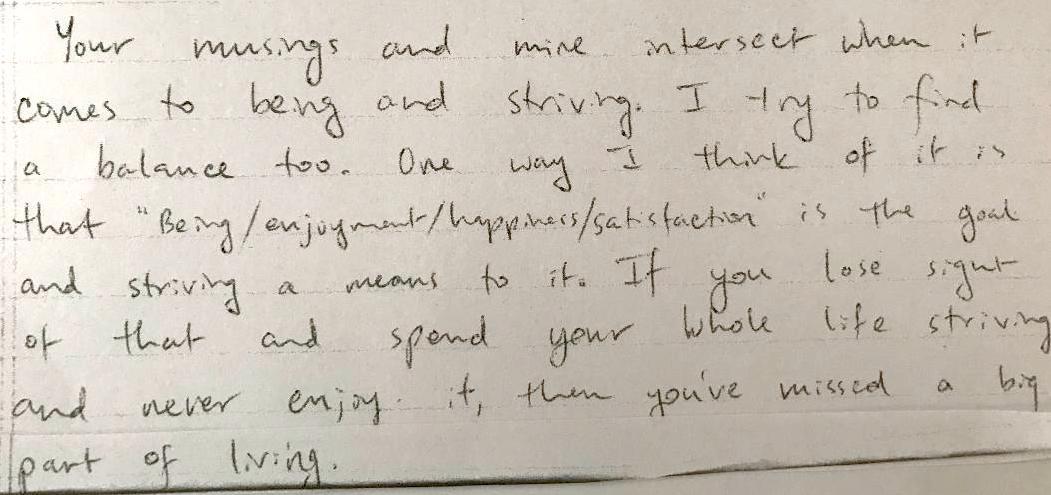 Your musings and mine intersect when it
comes to being and striving. I try to find
a balance too. One way I think of it is
that "Being/enjoyment/happiness/satisfaction" is the goal
and striving a means to it. If you lose sight
of that and spend your whole life striving
and never enjoy it, then you've missed a big
part of living.